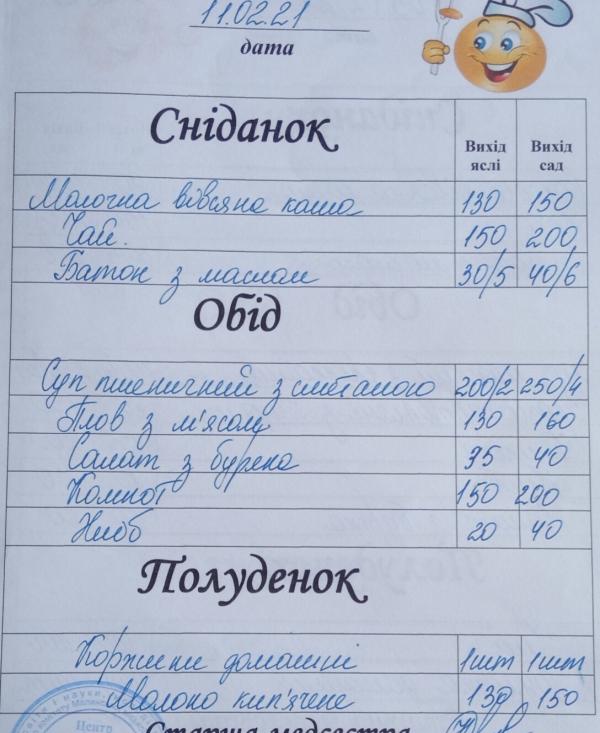 11.02.21
дата
Сніданок Вихід яслі Вихід сад
Молочна вівсяна каша 130 150
Чай. 150 200
Батон з маслом 30/5 40/6
Обід
Суп пшеничний з сметаною 200/2 250/4
Плов з м'ясом 130 160
Салат з буряка 35 40
Компот 150 200
Хліб 20 40
Полуденок
Коржики домашні 1шт 1шт
Молоко кип'ячене 130 150
Центр
Старша медсестра